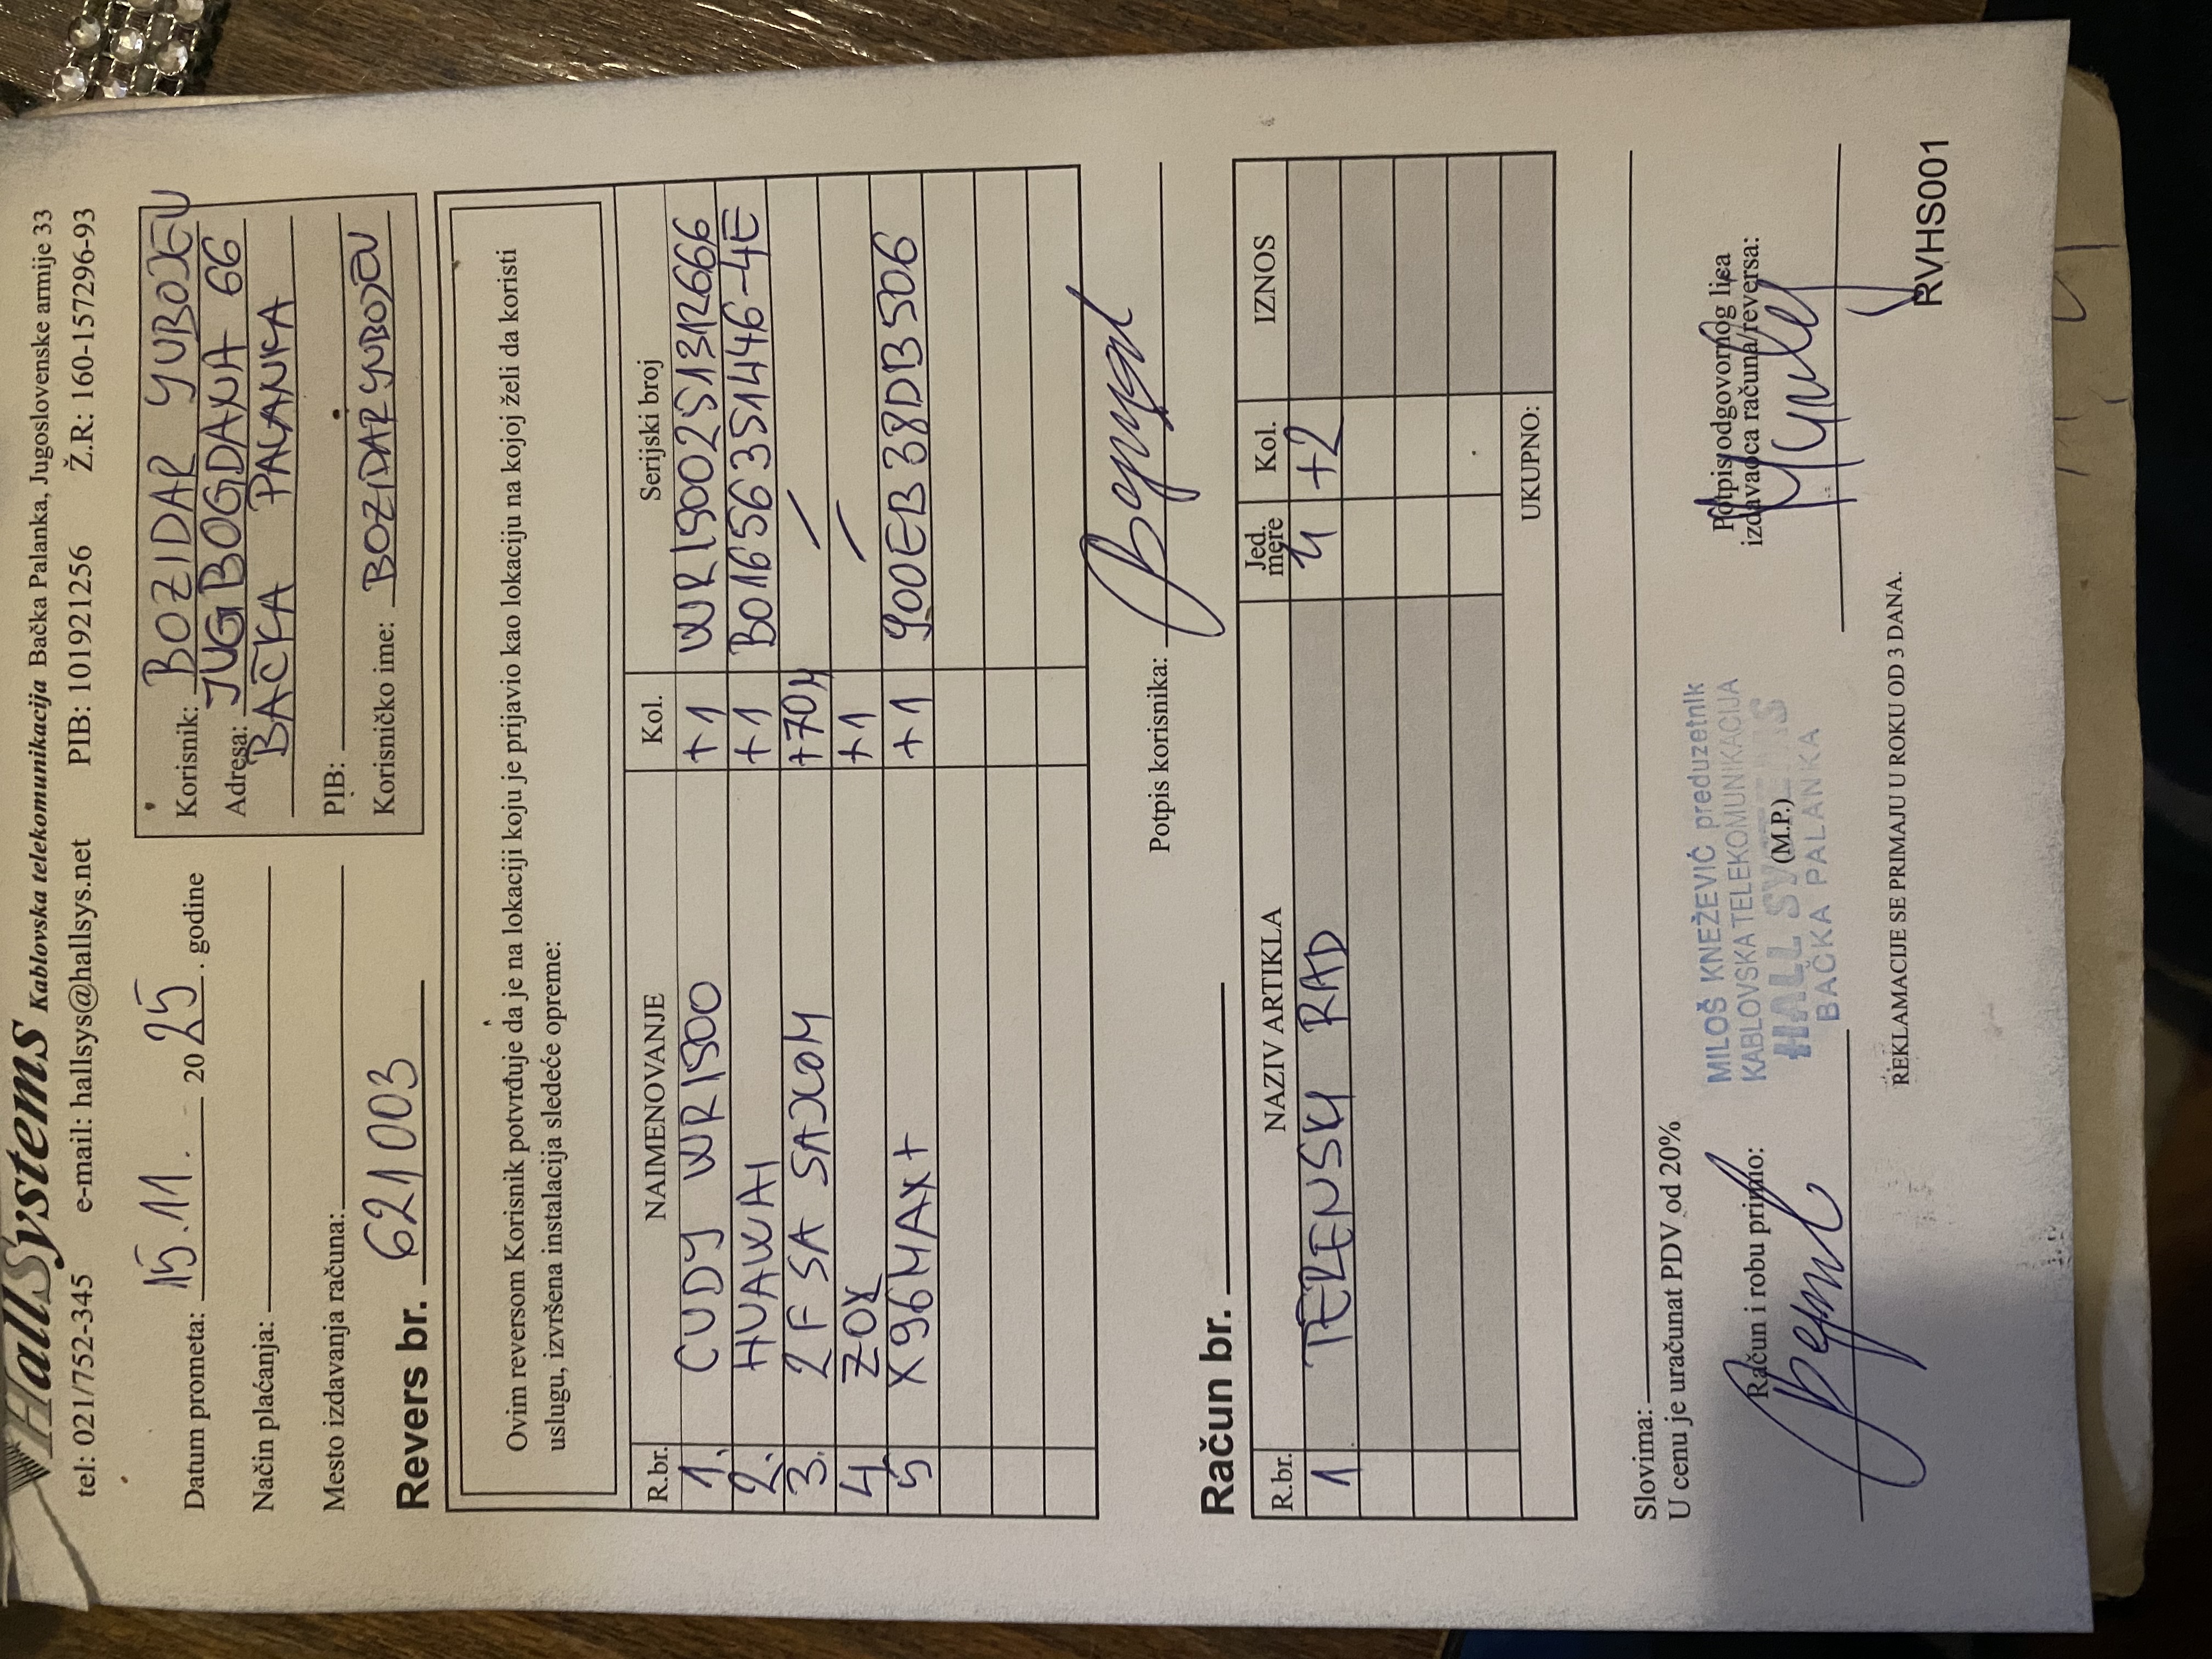 HallSystems Kablovska telekomunikacija Bačka Palanka, Jugoslovenske armije 33
tel: 021/752-345 e-mail: hallsys@hallsys.net PIB: 101921256 Ž.R: 160-157296-93
Datum prometa: 15.11. 2025. godine
Način plaćanja:
Mesto izdavanja računa:
Korisnik: BOZIDAR YUBOJEV
Adresa: JUGBOGDANA 66
BAČKA PALANKA
PIB:
Korisničko ime: BOZIDARYUBOJEV
Revers br. 621003
Ovim reversom Korisnik potvrđuje da je na lokaciji koju je prijavio kao lokaciju na kojoj želi da koristi
uslugu, izvršena instalacija sledeće opreme:
R.br. NAIMENOVANJE Kol. Serijski broj
1. CUDY WR1500 +1 WR1500251312666
2. HUAWAI +1 B016563351446-4E
3. 2F SA SAJLOM +70M /
4. ZOK +1 /
5 X96MAX+ +1 900EB38DB506
Potpis korisnika:
Račun br.
R.br. NAZIV ARTIKLA Jed. mere Kol. IZNOS
1 TERENSKI RAD Ч +2
UKUPNO:
Slovima:
U cenu je uračunat PDV od 20%
Račun i robu primio:
(M.P.)
MILOŠ KNEŽEVIĆ preduzetnik
KABLOVSKA TELEKOMUNIKACIJA
HALL SYSTEMS
BAČKA PALANKA
Potpis odgovornog lica
izdavaoca računa/reversa:
REKLAMACIJE SE PRIMAJU U ROKU OD 3 DANA.
RVHS001